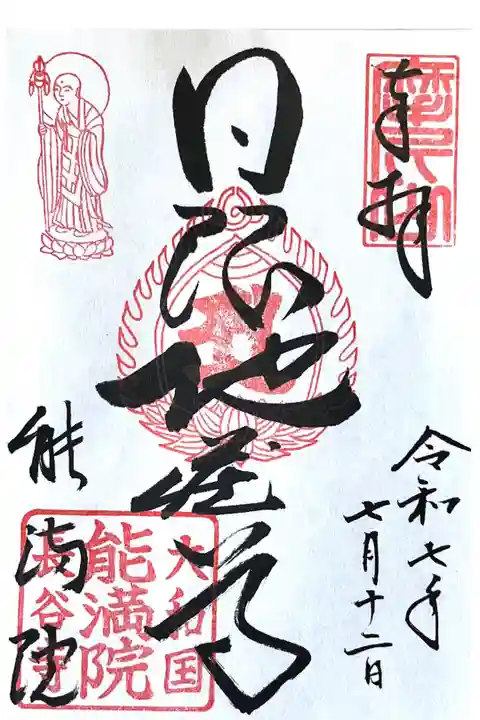 奉拝
令和七年
七月十二日
日限地蔵尊
能満院
大和国
能満院
長谷寺